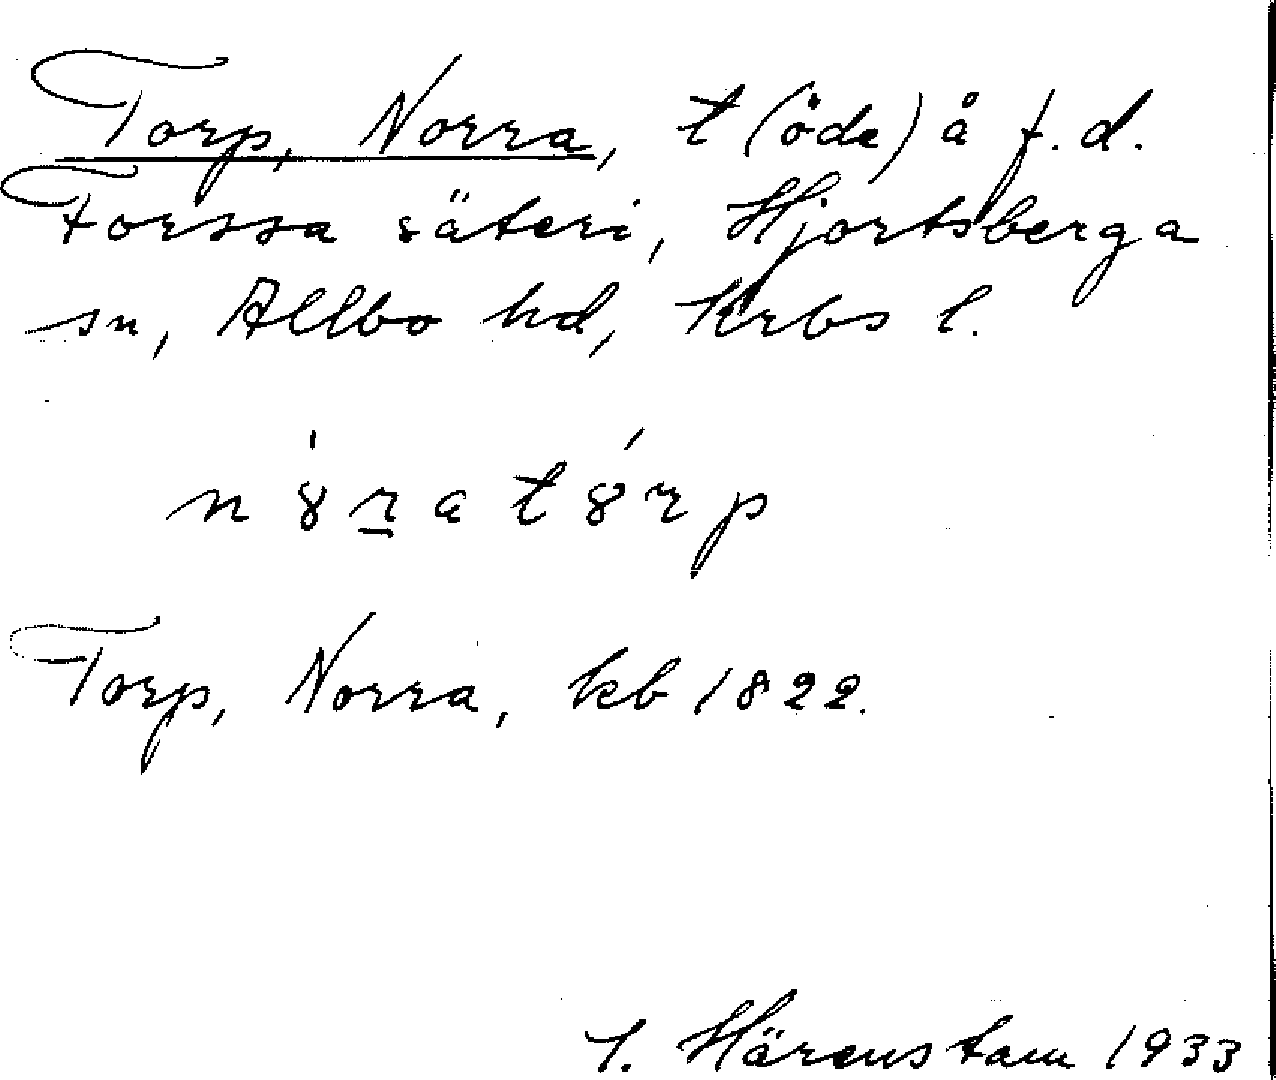 Torp, Norra, t (öde) å f.d.
Forssa säteri, Hjortsberga
sn, Allbo hd, Krbs l.
Torp, Norra, kb 1822.
Härenstam 1933